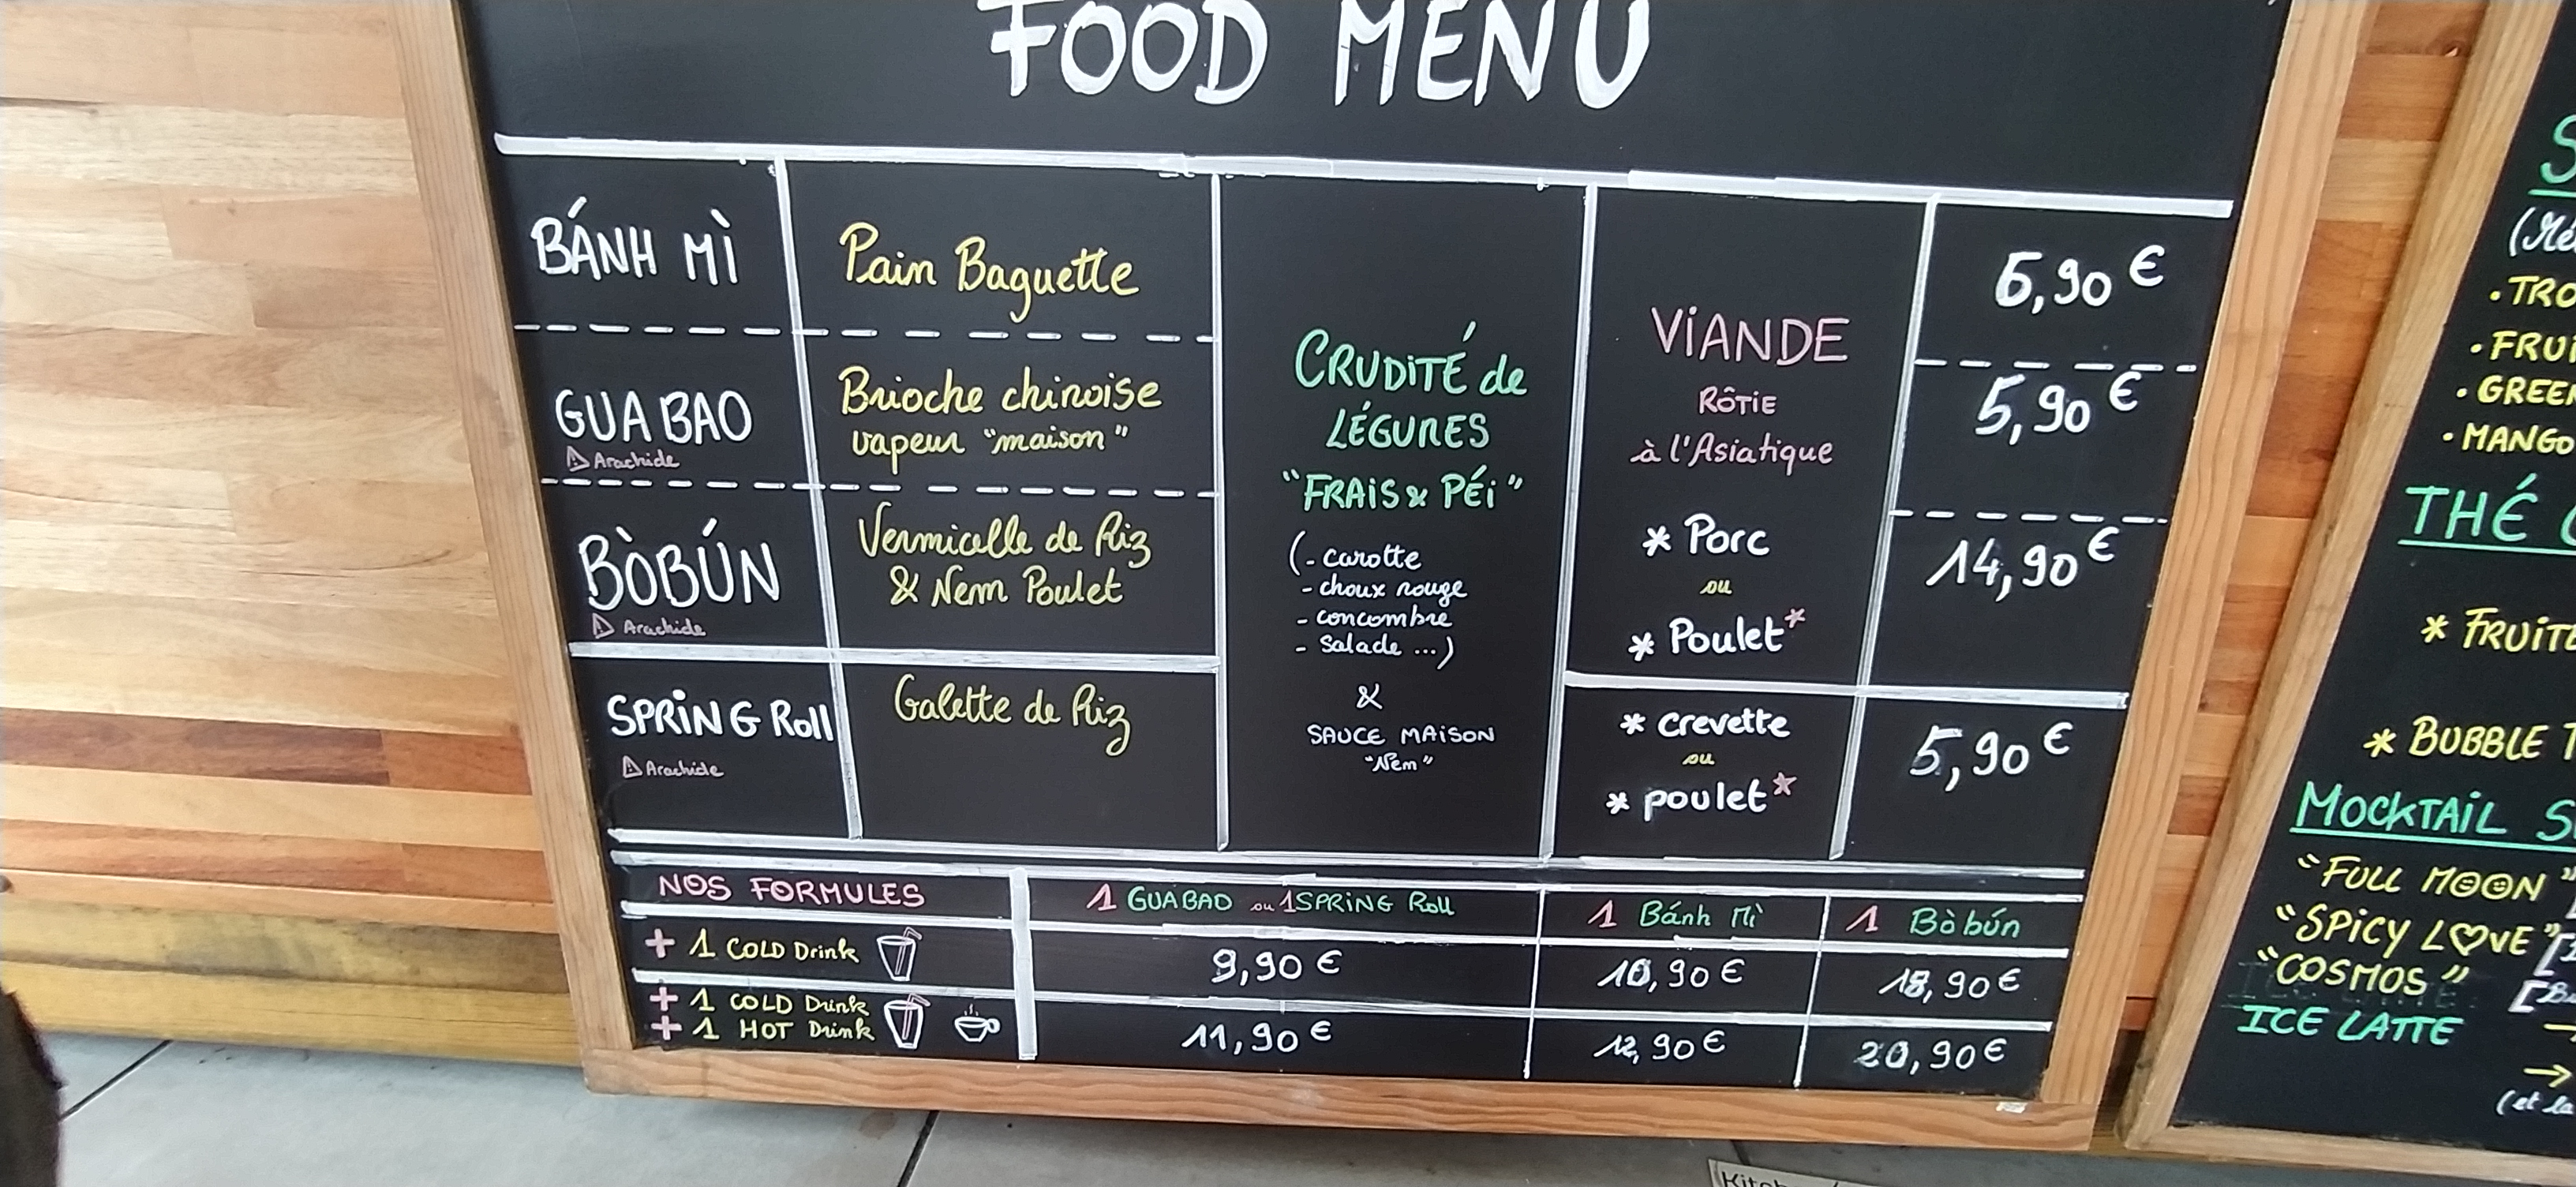 FOOD MENU
BÁNH MÌ
Pain Baguette
6,90 €
GUA BAO
Arachide
Brioche chinoise
vapeur "maison"
5,90 €
BÒBÚN
Arachide
Vermicelle de Riz
& Nem Poulet
14,90 €
SPRING Roll
Arachide
Galette de Riz
5,90 €
CRUDITÉ de
LÉGUMES
"FRAIS & PÉI"
(- carotte
- choux rouge
- concombre
- salade ...)
&
SAUCE MAISON
"Nem"
VIANDE
RÔTIE
à l'Asiatique
* Porc
ou
* Poulet*
* crevette
ou
* poulet*
NOS FORMULES
1 GUA BAO ou 1 SPRING Roll
1 Bánh Mì
1 Bòbún
+ 1 COLD Drink
9,90 €
10,90 €
18,90 €
+ 1 COLD Drink
+ 1 HOT Drink
11,90 €
12,90 €
20,90 €
THÉ
* BUBBLE
MOCKTAIL
"FULL MOON"
"SPICY LOVE"
"COSMOS"
ICE LATTE
(et la